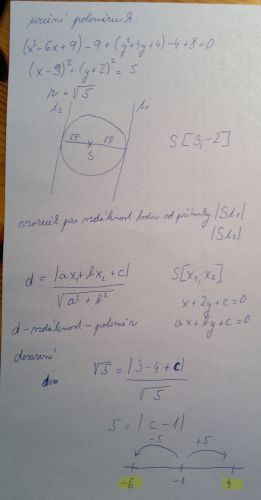 určení poloměru k:
(x²-6x+9)-9+(y²+4y+4)-4+8=0
(x-9)²+(y+2)²=5
r=√5
t₂ t₁
√5 √5
S
S[3,-2]
vzoreček pro vzdálenost bodu od přímky |St₁|
|St₂|
d = |ax₁+bx₂+c| / √(a²+b²)
S[x₁,x₂]
x+2y+c=0
ax+by+c=0
d-vzdálenost-poloměr
dosazení
√5 = |3-4+c| / √5
5=|c-1|
-5 +5
-6 -1 4